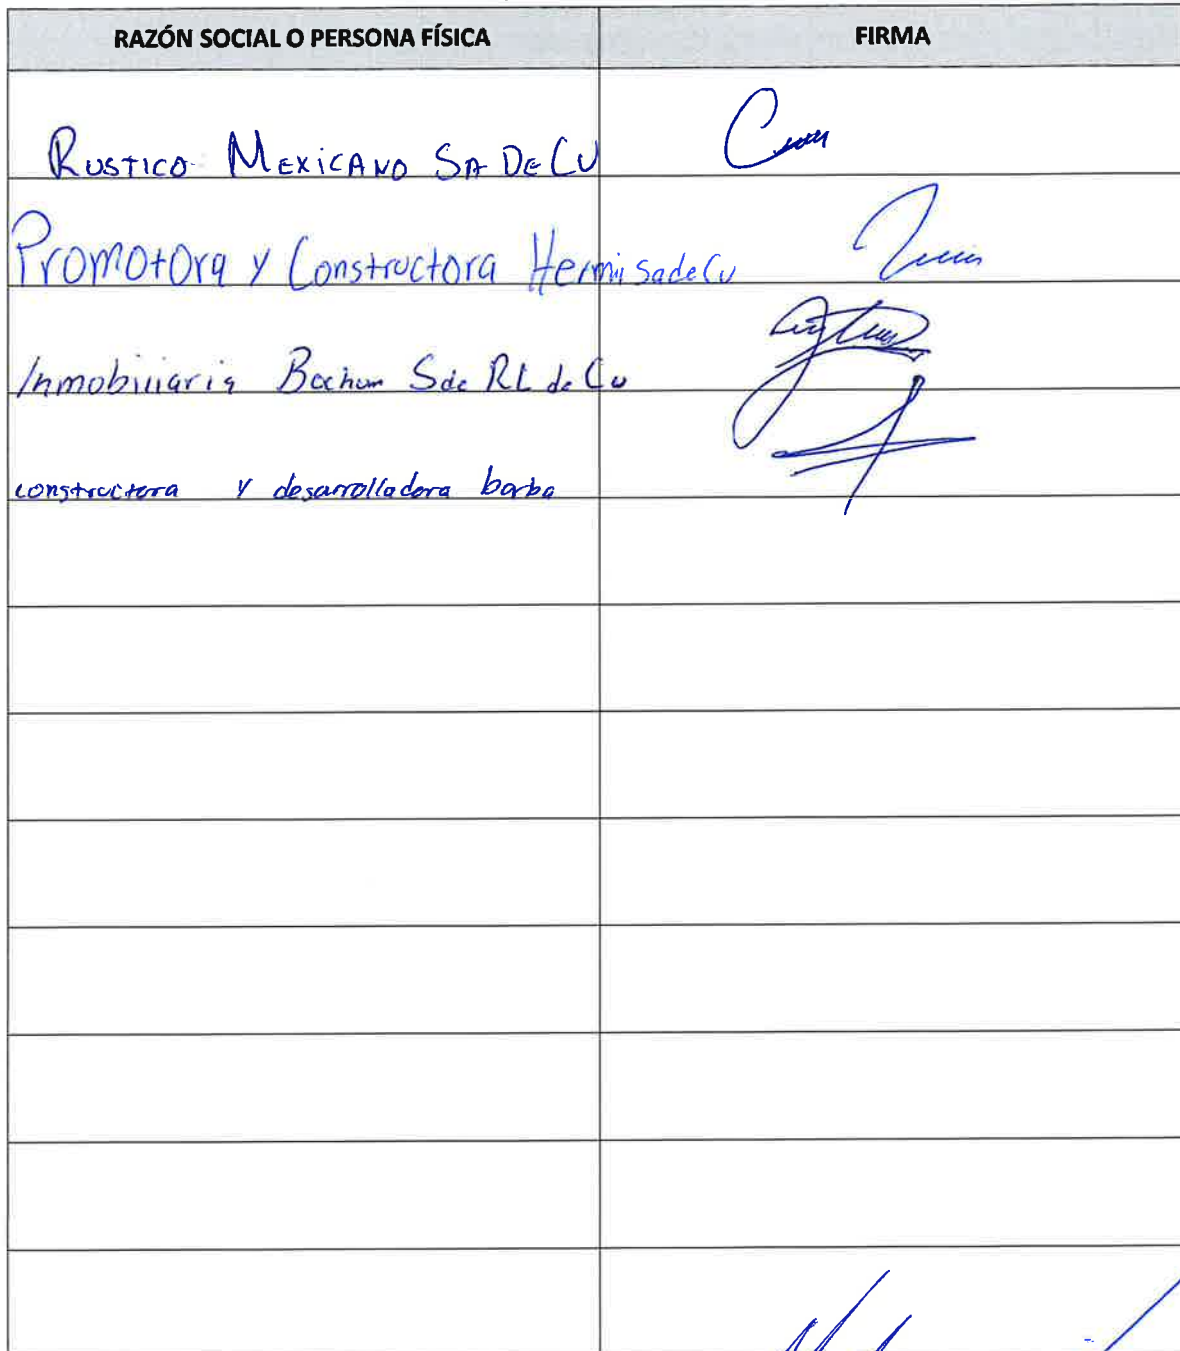 RAZÓN SOCIAL O PERSONA FÍSICA FIRMA
RUSTICO MEXICANO SA DE CV
Promotora y Constructora Hermi sa de Cv
Inmobiliaria Bochum S de RL de Cv
constructora y desarrolladora barba